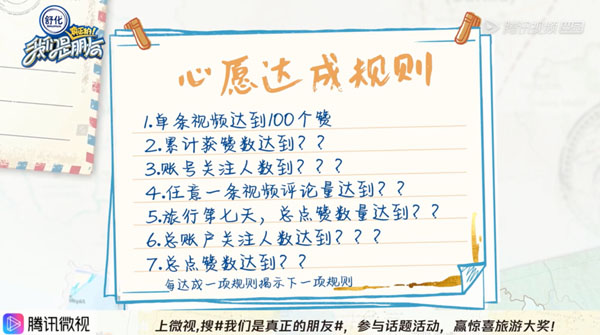 舒化
真正的!
我们是朋友
腾讯视频
心愿达成规则
1.单条视频达到100个赞
2.累计获赞数达到??
3.账号关注人数到???
4.任意一条视频评论量达到??
5.旅行第七天，总点赞数量达到??
6.总账户关注人数达到???
7.总点赞数达到??
每达成一项规则揭示下一项规则
腾讯微视
上微视,搜#我们是真正的朋友#，参与话题活动，赢惊喜旅游大奖!